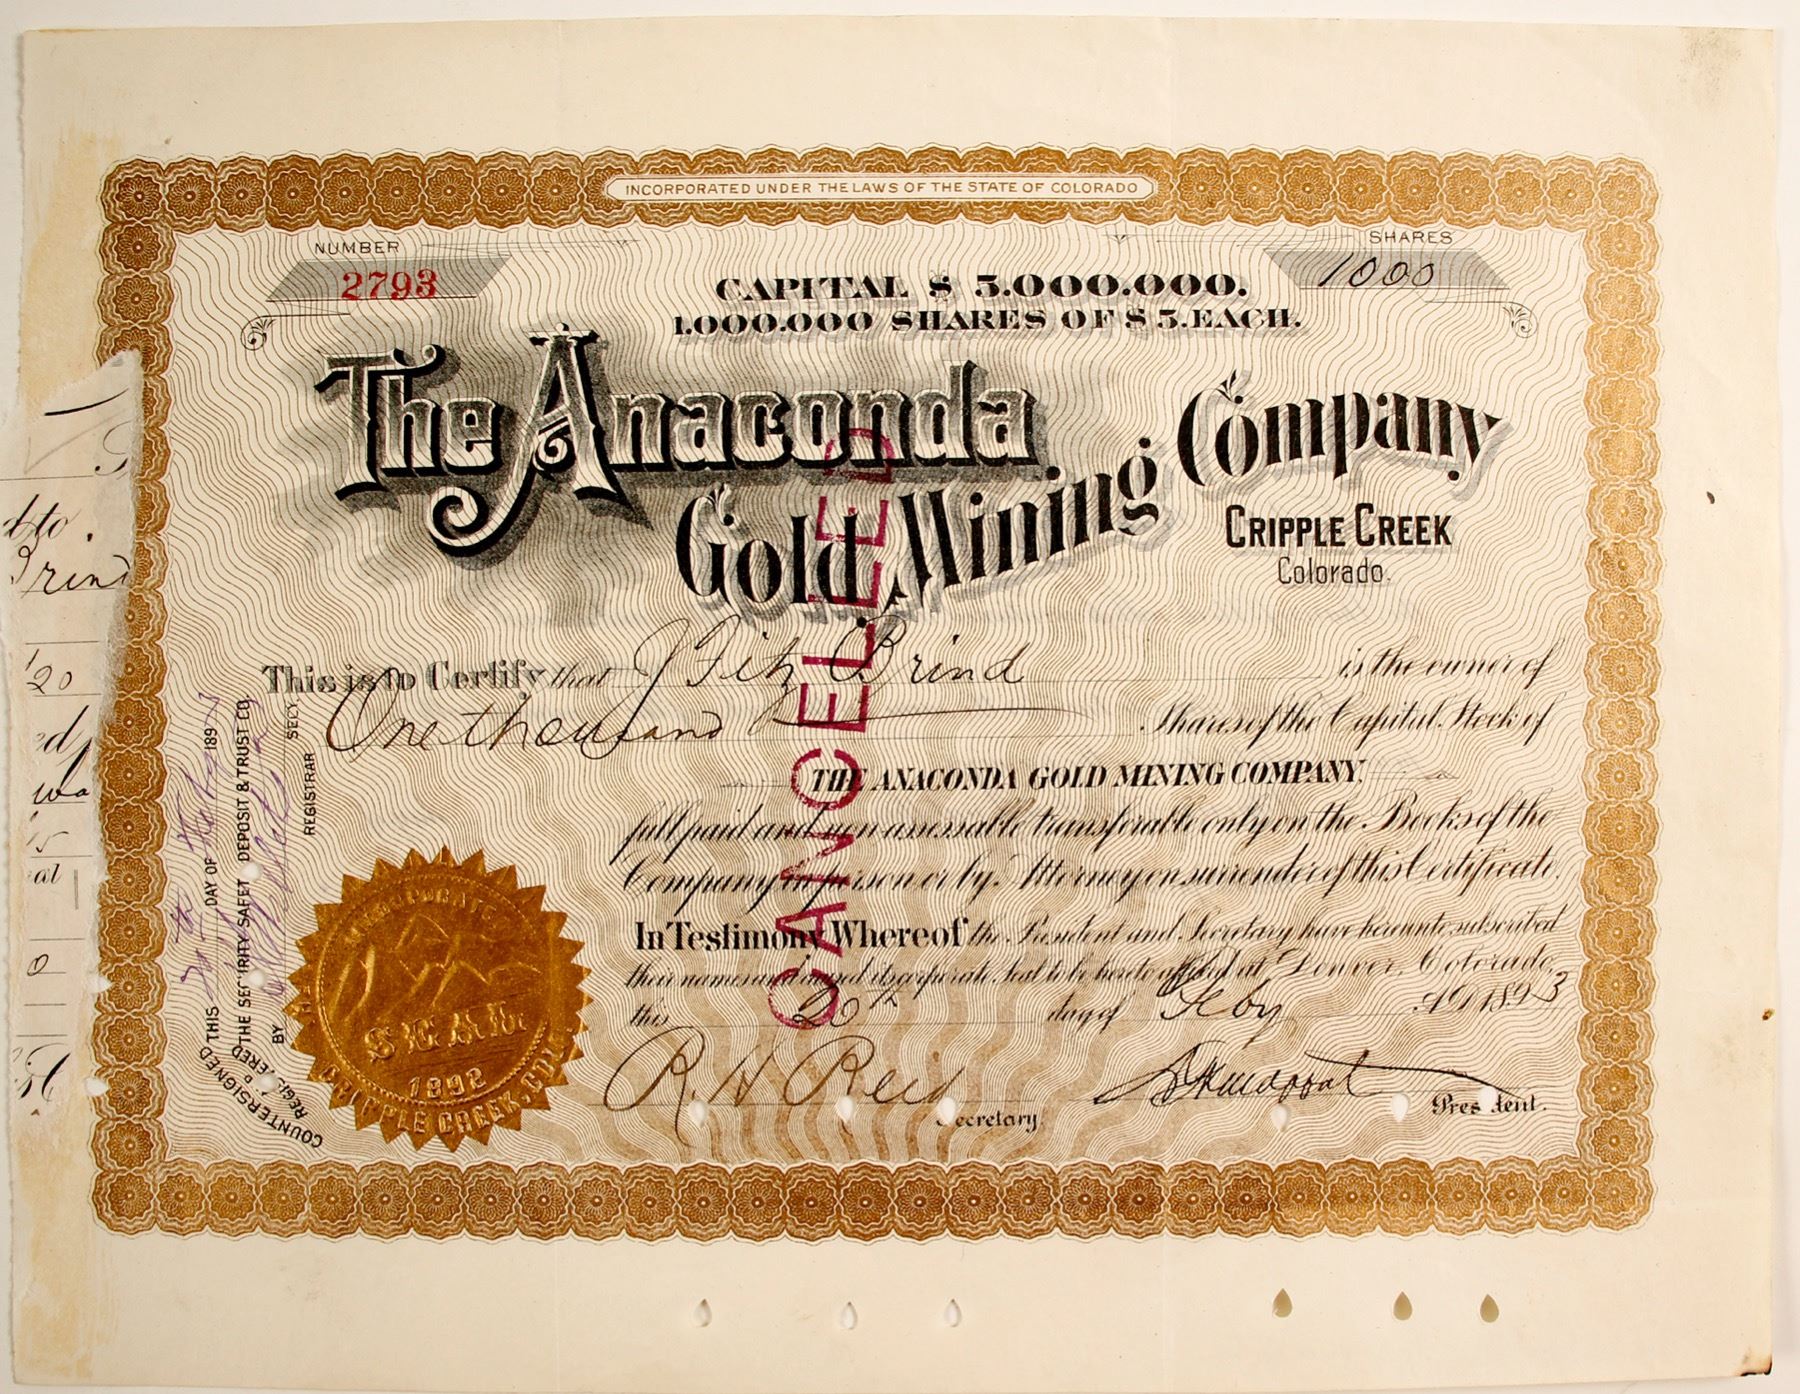 INCORPORATED UNDER THE LAWS OF THE STATE OF COLORADO
NUMBER
2793
SHARES
1000
CAPITAL $5.000.000.
1.000.000 SHARES OF $5.EACH.
The Anaconda
Gold Mining
Company
CRIPPLE CREEK
Colorado.
This is to Certify that J Fitz Brind is the owner of
One thousand Shares of the Capital Stock of
THE ANACONDA GOLD MINING COMPANY.
full paid and non assessable transferable only on the Books of the
Company in person or by Attorney on surrender of this Certificate.
In Testimony Whereof the President and Secretary have hereunto subscribed
their names and caused its corporate Seal to be hereto affixed at Denver, Colorado,
this 20th day of Feby AD 1893
R. H. Reid
Secretary
President.
CANCELLED
COUNTERSIGNED THIS DAY OF 189
REGISTERED THE SECURITY SAFET DEPOSIT & TRUST CO.
BY SECY.
REGISTRAR
INCORPORATED
SEAL
1892
CRIPPLE CREEK, COL.
d to
Brind
20